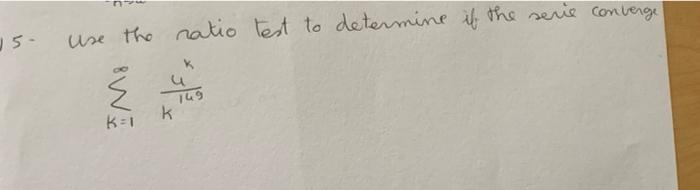 15- use the ratio test to determine if the serie converge
∞
Σ 4^k / k^149
K=1